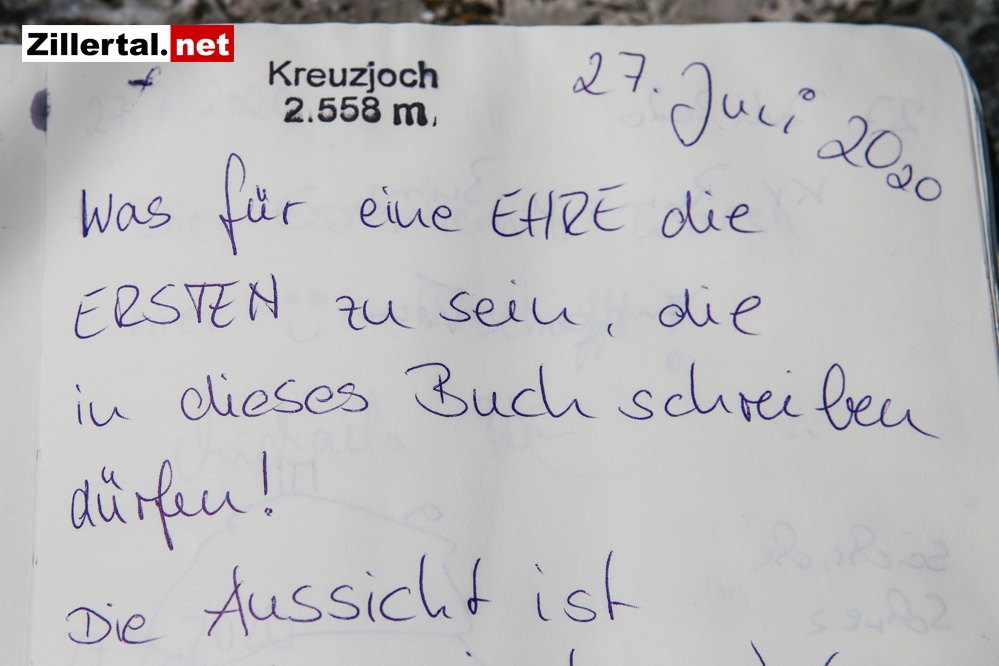 Zillertal.net
Kreuzjoch
2.558 m,
27. Juni 2020
Was für eine EHRE die
ERSTEN zu sein, die
in dieses Buch schreiben
dürfen!
Die Aussicht ist